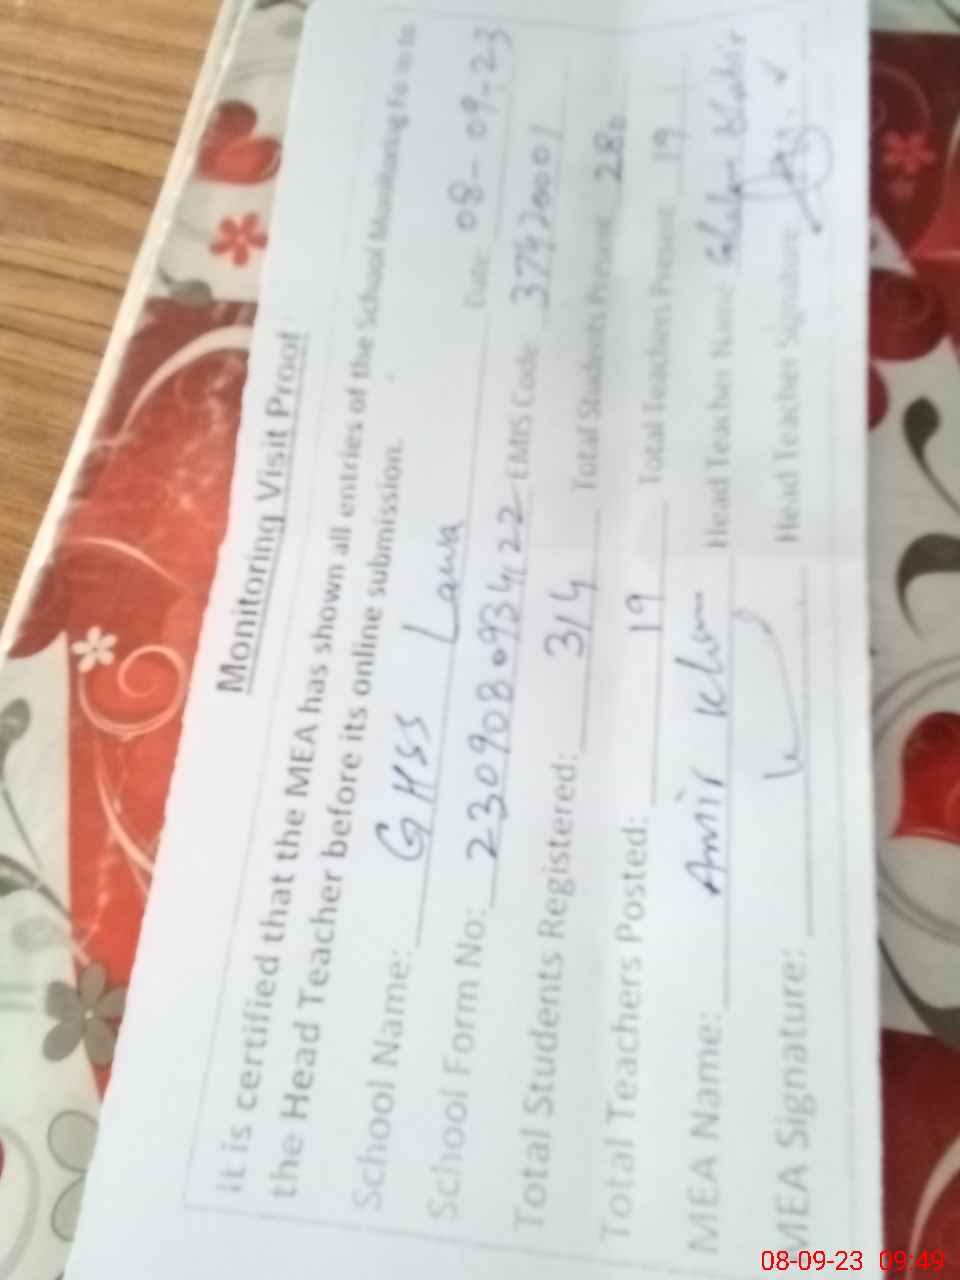 Monitoring Visit Proof
It is certified that the MEA has shown all entries of the School Monitoring Form to
the Head Teacher before its online submission.
School Name: GHSS Lawa Date: 08-09-23
School Form No: EMIS Code: 37920001
Total Students Registered: 314 Total Students Present: 280
Total Teachers Posted: 19 Total Teachers Present: 19
MEA Name: Amir Khan Head Teacher Name:
MEA Signature: Head Teacher Signature:
08-09-23 09:49